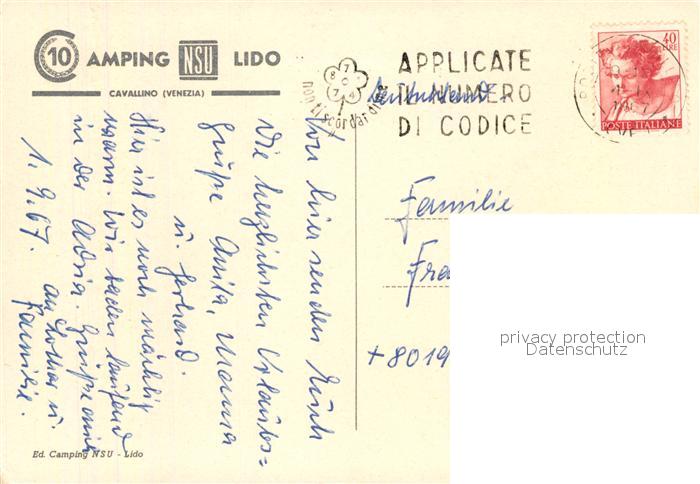 10 AMPING NSU LIDO
CAVALLINO (VENEZIA)
Von hier senden Euch
die herzlichsten Urlaubs=
grüße Anita, Mama
u. Gerhard.
Hier ist es noch mächtig
warm. Wir baden laufend
in der Adria. Grüße auch
an Lothar u.
Familie.
1.9.67.
Ed. Camping NSU - Lido
non ti scordar di
APPLICATE
IL NUMERO
DI CODICE
40
LIRE
POSTE ITALIANE
Deutschland
Familie
Fra
+ 8019
privacy protection
Datenschutz